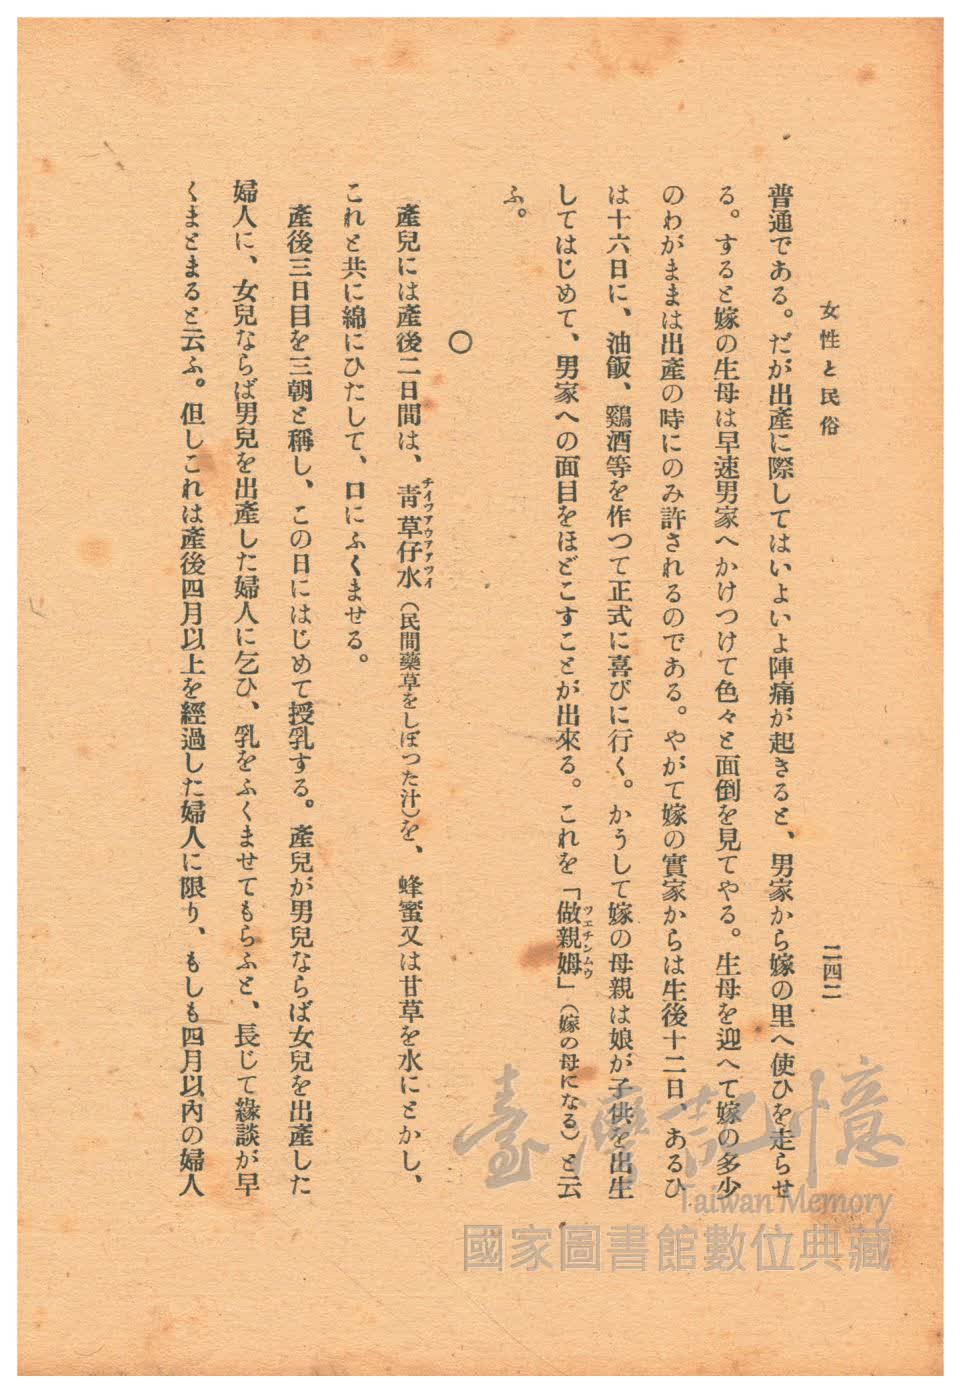 女性と民俗
二四二
普通である。だが出產に際してはいよいよ陣痛が起きると、男家から嫁の里へ使ひを走らせ
る。すると嫁の生母は早速男家へかけつけて色々と面倒を見てやる。生母を迎へて嫁の多少
のわがままは出產の時にのみ許されるのである。やがて嫁の實家からは生後十二日、あるひ
は十六日に、油飯、鷄酒等を作つて正式に喜びに行く。かうして嫁の母親は娘が子供を出生
してはじめて、男家への面目をほどこすことが出來る。これを「做親姆」(嫁の母になる)と云
ツエチンムウ
ふ。
〇
產兒には產後二日間は、靑草仔水(民間藥草をしぼつた汁)を、蜂蜜又は甘草を水にとかし、
チイツアウアアツイ
これと共に綿にひたして、口にふくませる。
產後三日目を三朝と稱し、この日にはじめて授乳する。產兒が男兒ならば女兒を出產した
婦人に、女兒ならば男兒を出產した婦人に乞ひ、乳をふくませてもらふと、長じて緣談が早
くまとまると云ふ。但しこれは產後四月以上を經過した婦人に限り、もしも四月以內の婦人
臺灣記憶
Taiwan Memory
國家圖書館數位典藏